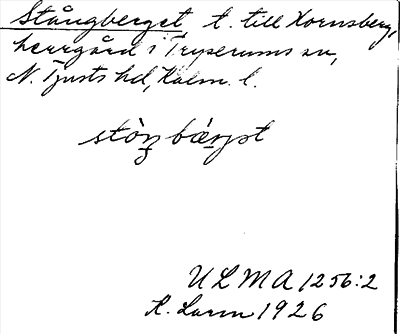 Stångberget t. till Hornsberg,
herrgård i Tryserums sn,
N. Tjusts hd, Kalm. l.
stòŋ bǽrjət
ULMA 1256:2
H. Larm 1926